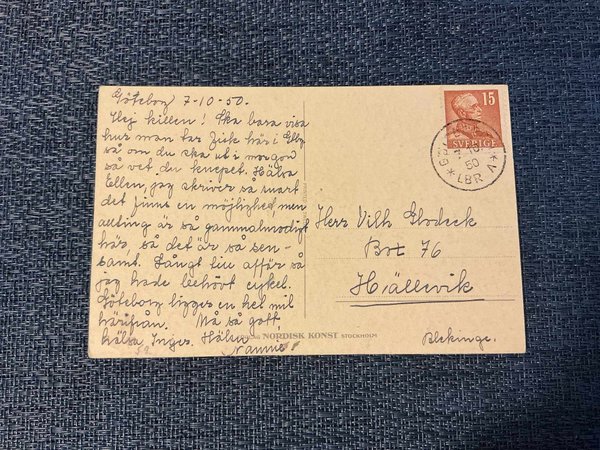 Göteborg 7-10-50.
Hej killen! Ska bara visa
hur man tar fisk här i Gbg
så om du ska ut i morgon
så vet du knepet. Hälsa
Ellen jag skriver så snart
det finns en möjlighet, men
allting är så gammalmodigt
här, så det är så sen-
samt. Långt till affär så
jag hade behövt cykel.
Göteborg ligger en hel mil
härifrån. Må så gott,
hälsa Inger. Hälsn.
15
SVERIGE
50
LBR A
Herr Vilh
Box 76
Hällevik
Blekinge.
NORDISK KONST STOCKHOLM